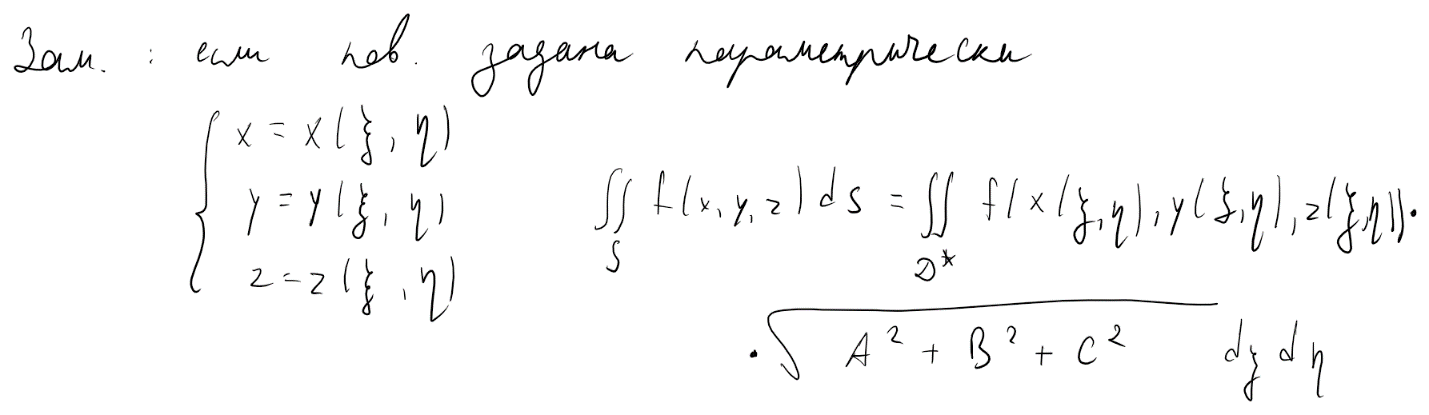 Зам. : если пов. задана параметрически
x = x(ξ, η)
y = y(ξ, η)
z = z(ξ, η)
∬_S f(x, y, z) ds = ∬_{D*} f(x(ξ,η), y(ξ,η), z(ξ,η)) ·
· √(A² + B² + C²) dξ dη